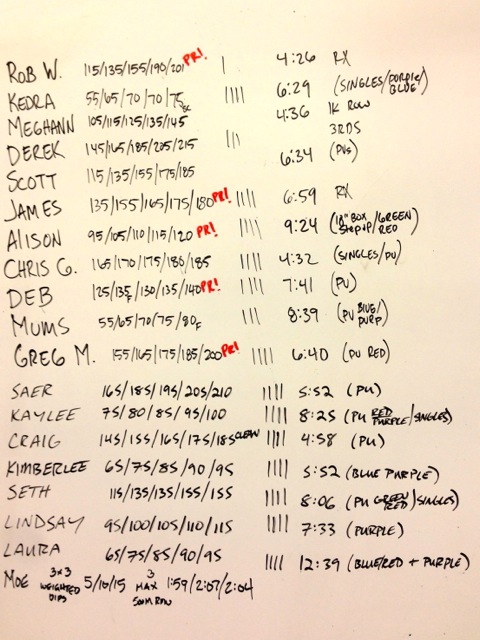 ROB W. 115/135/155/190/201 PR! | 4:26 RX
KEDRA 55/65/70/70/75 |||| 6:29 (SINGLES/PURPLE/BLUE)
MEGHANN 105/115/125/135/145 4:36 1K ROW
3RDS
DEREK 145/165/185/205/215 ||| 6:34 (PUs)
SCOTT 115/135/155/175/185
JAMES 135/155/165/175/180 PR! |||| 6:59 RX
ALISON 95/105/110/115/120 PR! |||| 9:24 (18" BOX STEP UP/GREEN RED)
CHRIS G. 165/170/175/180/185 |||| 4:32 (SINGLES/PU)
DEB 125/135F/130/135/140 PR! |||| 7:41 (PU)
MUMS 55/65/70/75/80F ||| 8:39 (PU BLUE/PURP.)
GREG M. 155/165/175/185/200 PR! |||| 6:40 (PU RED)
SAER 165/185/195/205/210 |||| 5:52 (PU)
KAYLEE 75/80/85/95/100 |||| 8:25 (PU RED PURPLE/SINGLES)
CRAIG 145/155/165/175/185 CLEAN |||| 4:58 (PU)
KIMBERLEE 65/75/85/90/95 |||| 5:52 (BLUE PURPLE)
SETH 115/135/135/155/155 |||| 8:06 (PU GREEN RED/SINGLES)
LINDSAY 95/100/105/110/115 |||| 7:33 (PURPLE)
LAURA 65/75/85/90/95 |||| 12:39 (BLUE/RED + PURPLE)
MOE 3x3 WEIGHTED DIPS 5/10/15 3 MAX 500M ROW 1:59/2:07/2:04